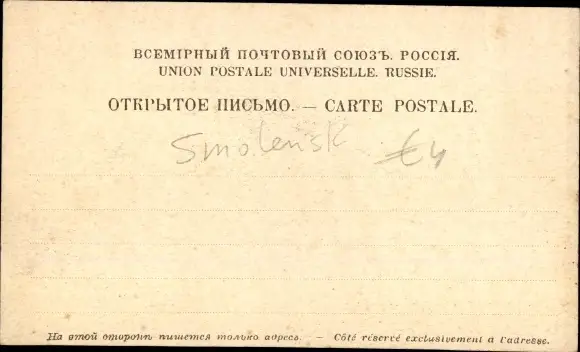 ВСЕМІРНЫЙ ПОЧТОВЫЙ СОЮЗЪ. РОССІЯ.
UNION POSTALE UNIVERSELLE. RUSSIE.
ОТКРЫТОЕ ПИСЬМО. — CARTE POSTALE.
Smolensk €4
На этой сторонѣ пишется только адресъ. — Côté réservé exclusivement à l'adresse.